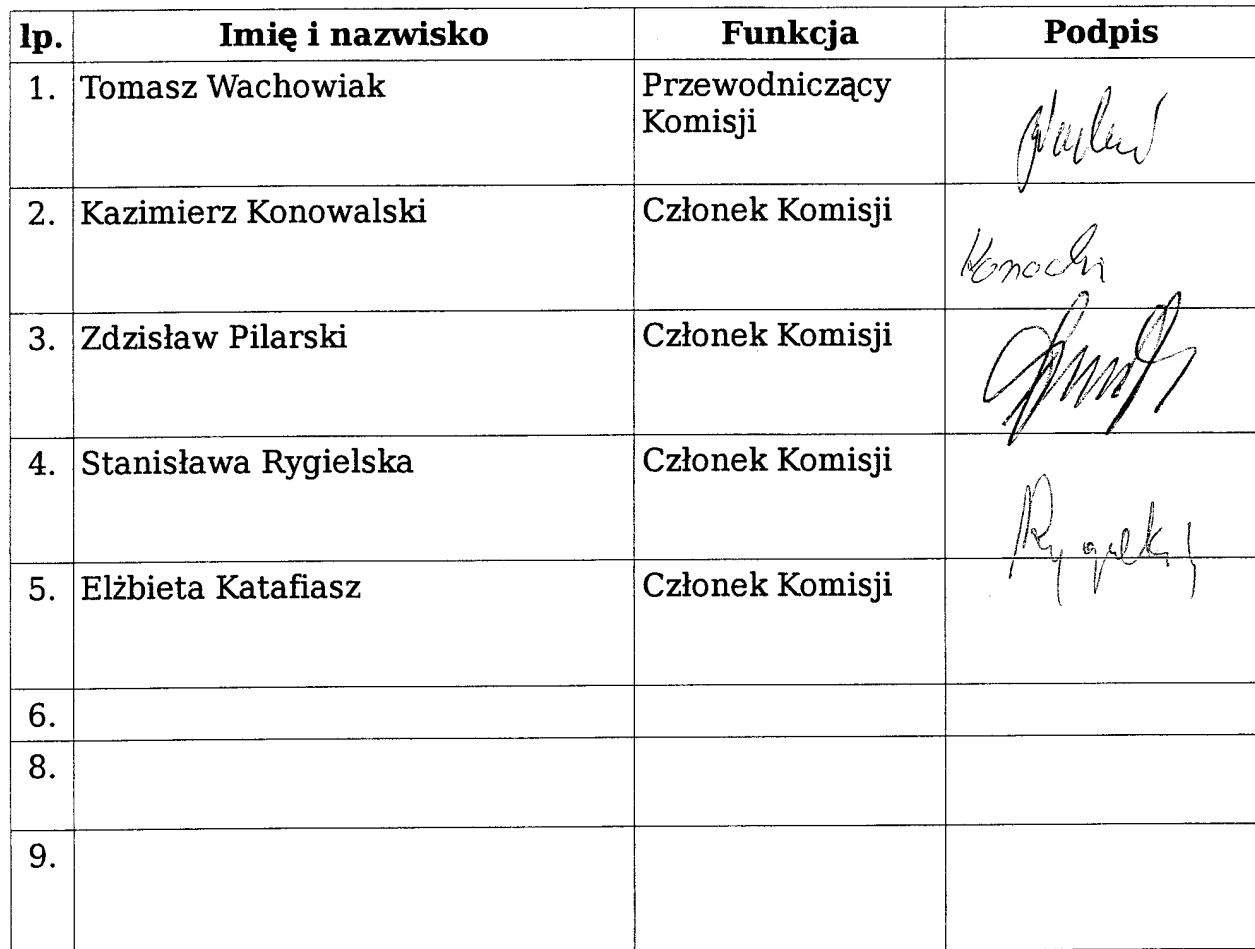 lp. Imię i nazwisko Funkcja Podpis
1. Tomasz Wachowiak Przewodniczący
Komisji
2. Kazimierz Konowalski Członek Komisji
3. Zdzisław Pilarski Członek Komisji
4. Stanisława Rygielska Członek Komisji
5. Elżbieta Katafiasz Członek Komisji
6.
8.
9.